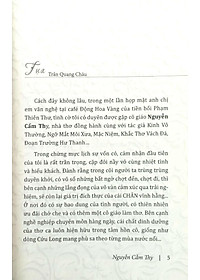 Tựa
Trần Quang Châu
Cách đây không lâu, trong một lần họp mặt anh chị
em văn nghệ tại café Động Hoa Vàng của tiền bối Phạm
Thiên Thư, tình cờ tôi có duyên được gặp cô giáo Nguyễn
Cẩm Thy, nhà thơ đồng hành cùng với tác giả Kinh Vô
Thường, Ngỡ Mắt Môi Xưa, Mặc Niệm, Khắc Thơ Vách Đá,
Đoạn Trường Hư Thanh...
Trong chừng mực lịch sự vốn có, cảm nhận đầu tiên
của tôi là rất trân trọng, cặp đôi này vô cùng nhiệt tình
và hiếu khách. Đành rằng trong cõi người ta trùng trùng
duyên khởi, có vô số những bất ngờ chợt đến, chợt đi, thì
bên cạnh những lắng đọng của vô vàn cảm xúc qua trải nghiệm,
sẽ còn lại giá trị đích thực của cái CHÂN vĩnh hằng...
Ở nơi đó có sự hao dung của tình người, có thiên nhiên
ưu đãi chở che và có thêm một cô giáo làm thơ. Bên cạnh
nghề nghiệp chuyên môn hàng ngày, cái chất dinh dưỡng
của thơ ca luôn hiện hữu trong tâm hồn cô, giống như
dòng Cửu Long mang phù sa theo từng mùa nước nổi...
Nguyễn Cẩm Thy | 5